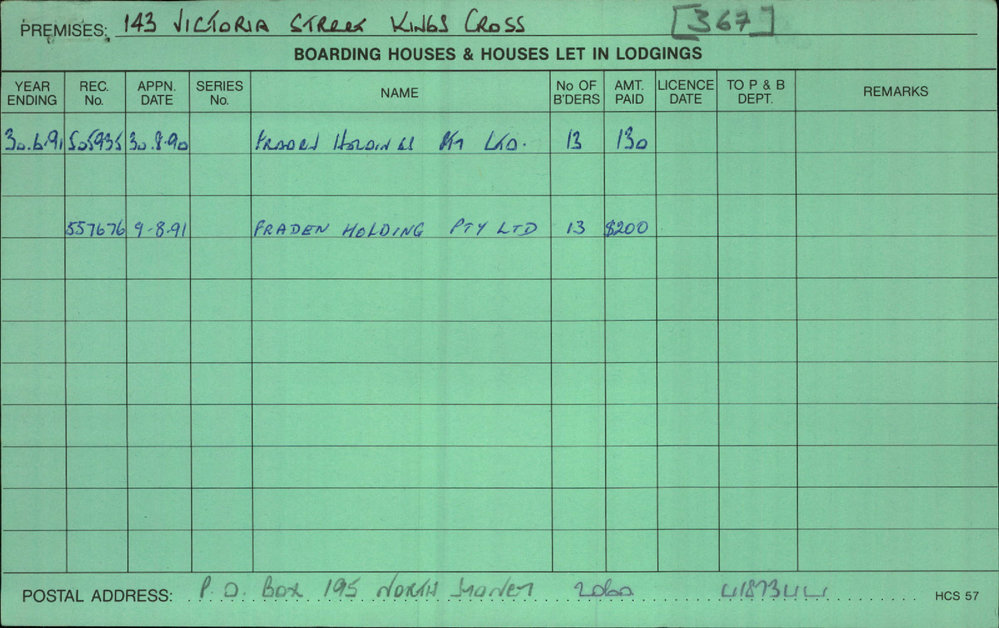 PREMISES: 143 VICTORIA STREET KINGS CROSS [367]
BOARDING HOUSES & HOUSES LET IN LODGINGS
YEAR ENDING REC. No. APPN. DATE SERIES No. NAME No OF B'DERS AMT. PAID LICENCE DATE TO P & B DEPT. REMARKS
30.6.91 505935 30.8.90 HOLDINGS LTD. 13 130
557676 9-8-91 FRADEN HOLDING PTY LTD 13 $200
POSTAL ADDRESS: P.O. BOX 195 NORTH SYDNEY 2060 HCS 57